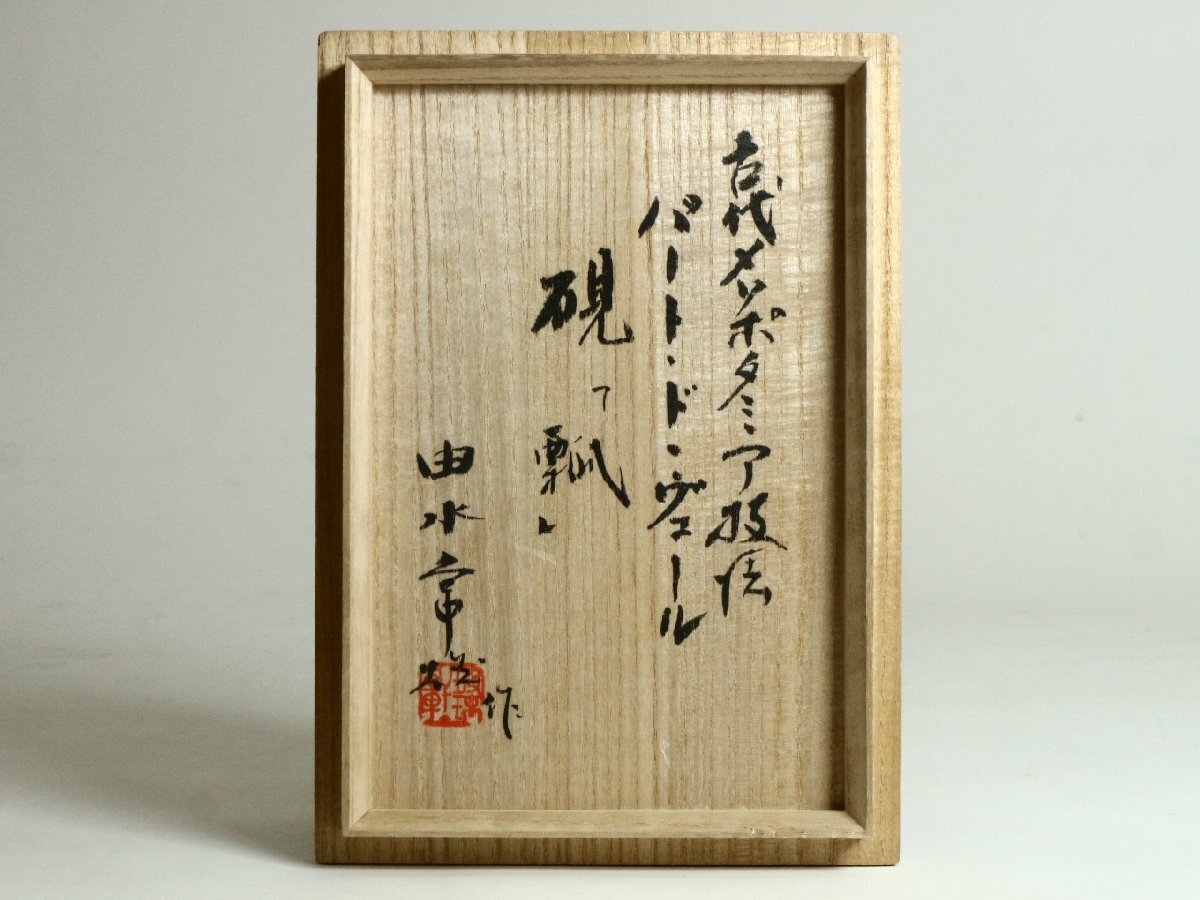 古代メソポタミア技法
パート・ド・ヴェール
硯「瓢」
由水常雄作